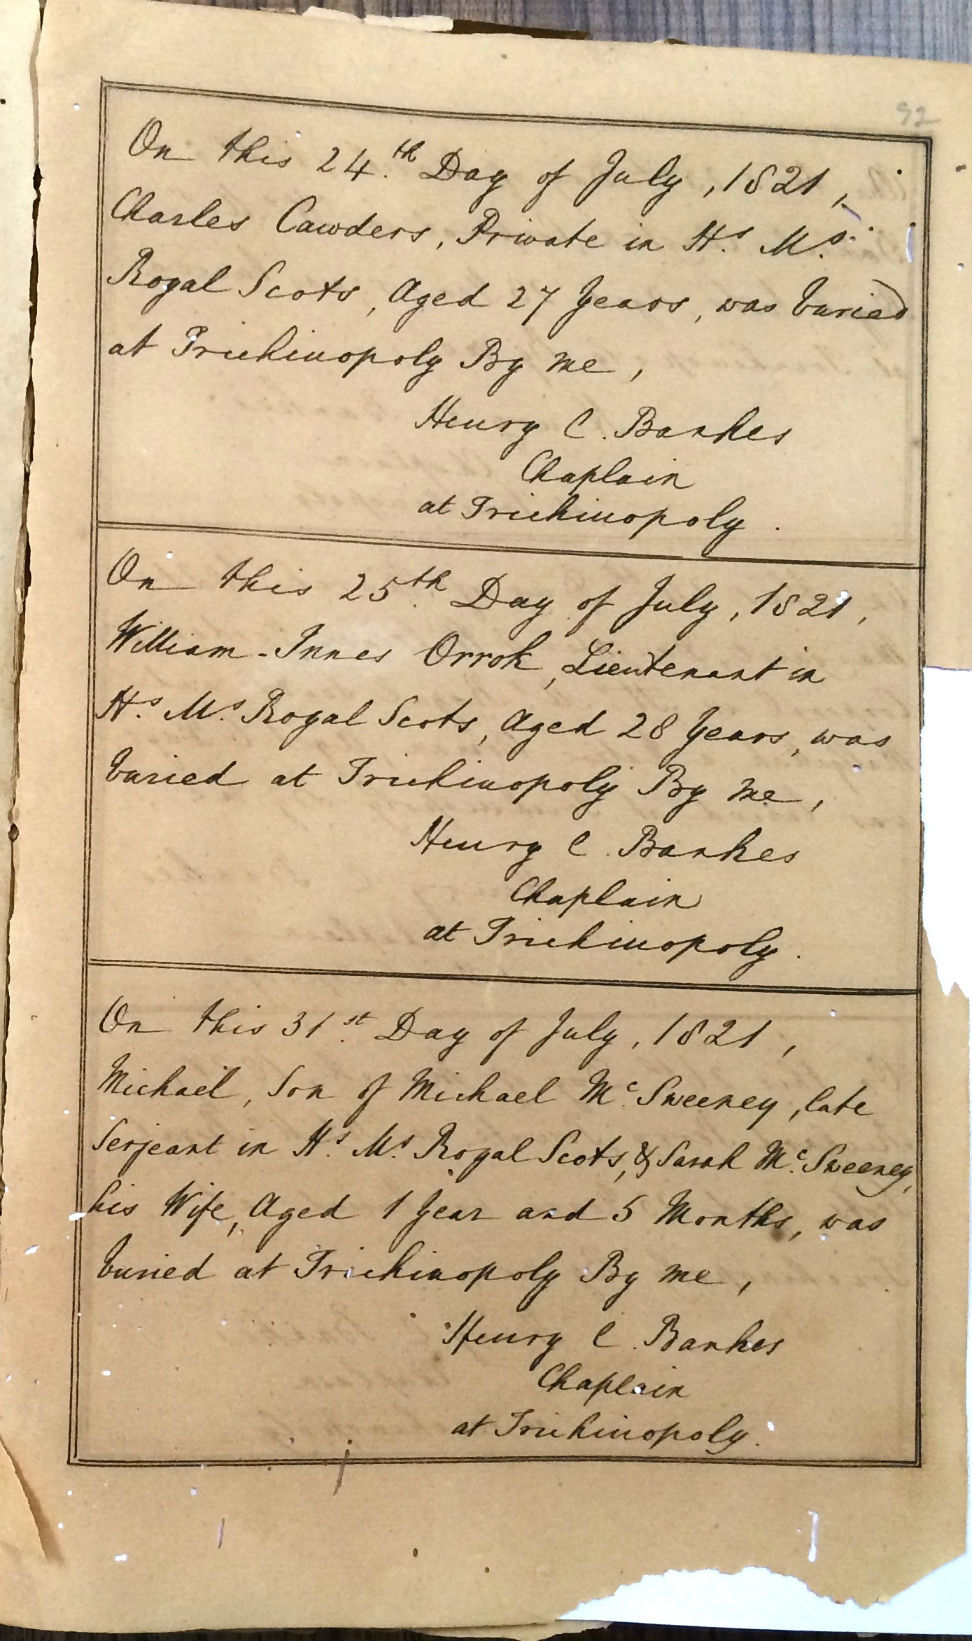 92
On this 24.th Day of July, 1821,
Charles Cawders, Private in H.s M.s
Royal Scots, Aged 27 Years, was buried
at Trichinopoly By me,
Henry C. Bankes
Chaplain
at Trichinopoly.
On this 25.th Day of July, 1821,
William-Innes Orrok, Lieutenant in
H.s M.s Royal Scots, Aged 28 Years, was
buried at Trichinopoly By me,
Henry C. Bankes
Chaplain
at Trichinopoly.
On this 31.st Day of July, 1821,
Michael, Son of Michael Mc. Sweeney, late
Serjeant in H.s M.s Royal Scots, & Sarah Mc. Sweeney,
his Wife, Aged 1 Year and 5 Months, was
buried at Trichinopoly By me,
Henry C. Bankes
Chaplain
at Trichinopoly.